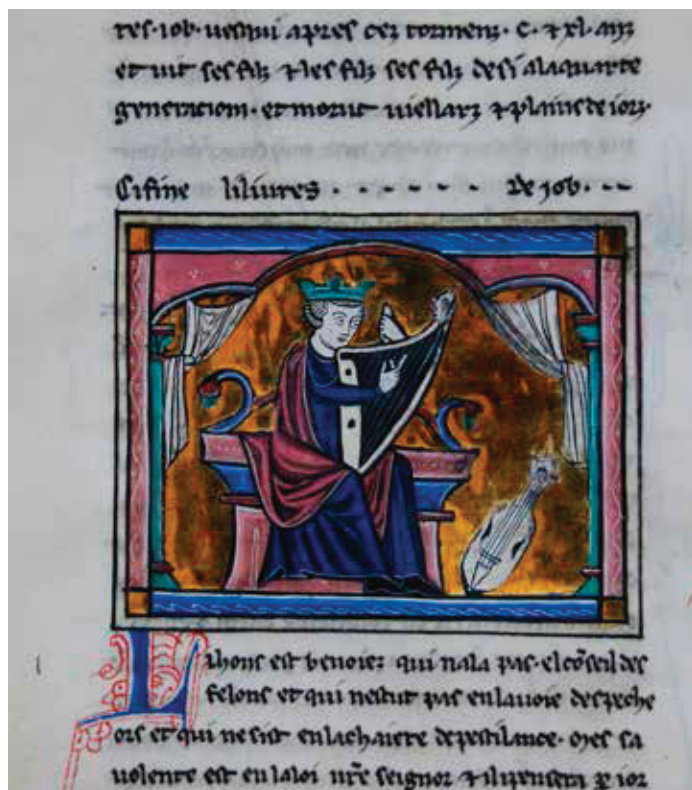 res· iob· uesqui apres cez tormenz· C· ⁊ xl· anz
et uit ses filz ⁊ les filz ses filz desi alaquarte
generaciom· et morut uiellarz ⁊ plains de iorz·
Cifine liliures · · · · · · · de iob· · ·
Lihons est benoiez qui nala pas· el cōseil des
felons et qui nestut pas enlauoie despeche
ors et qui ne sist enlachaiere depestilance· mes sa
uolente est en laloi nr̄e seignor ⁊ ilipensera ꝑ ior